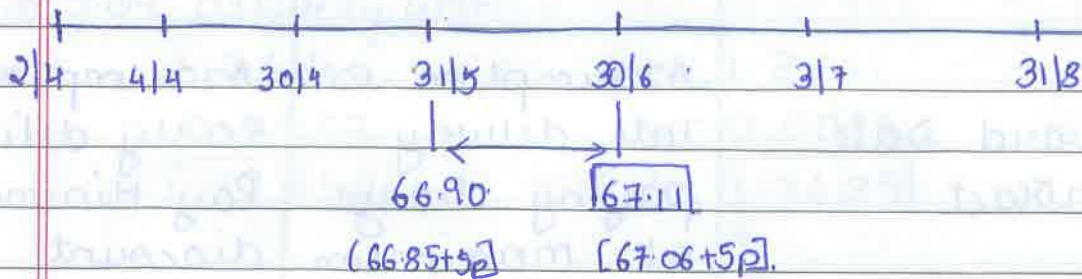 2/4 4/4 30/4 31/5 30/6 3/7 31/8
66.90 67.11
(66.85+5p] [67.06+5p].